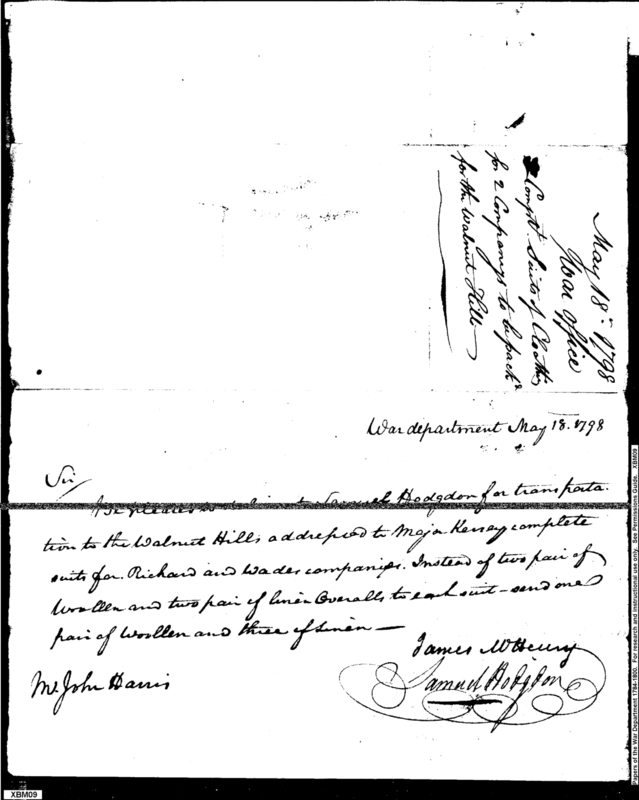 May 18th 1798
War office
Compt. Suits of Cloth'g
for 2 Companys to be pack'd
for the Walnut Hills
War department May 18. 1798
Sir
Be pleased to deliver to Samuel Hodgdon for transporta-
tion to the Walnut Hills addressed to Major Kersey complete
suits for Richard and Wades companies. Instead of two pair of
Woollen and two pair of linen Overalls to each suit - send one
pair of Woollen and three of Linen —
James McHenry
Samuel Hodgdon
Mr. John Harris
XBM09
Papers of the War Department 1784-1800. For research and instructional use only. See Permissions Guide. XBM09